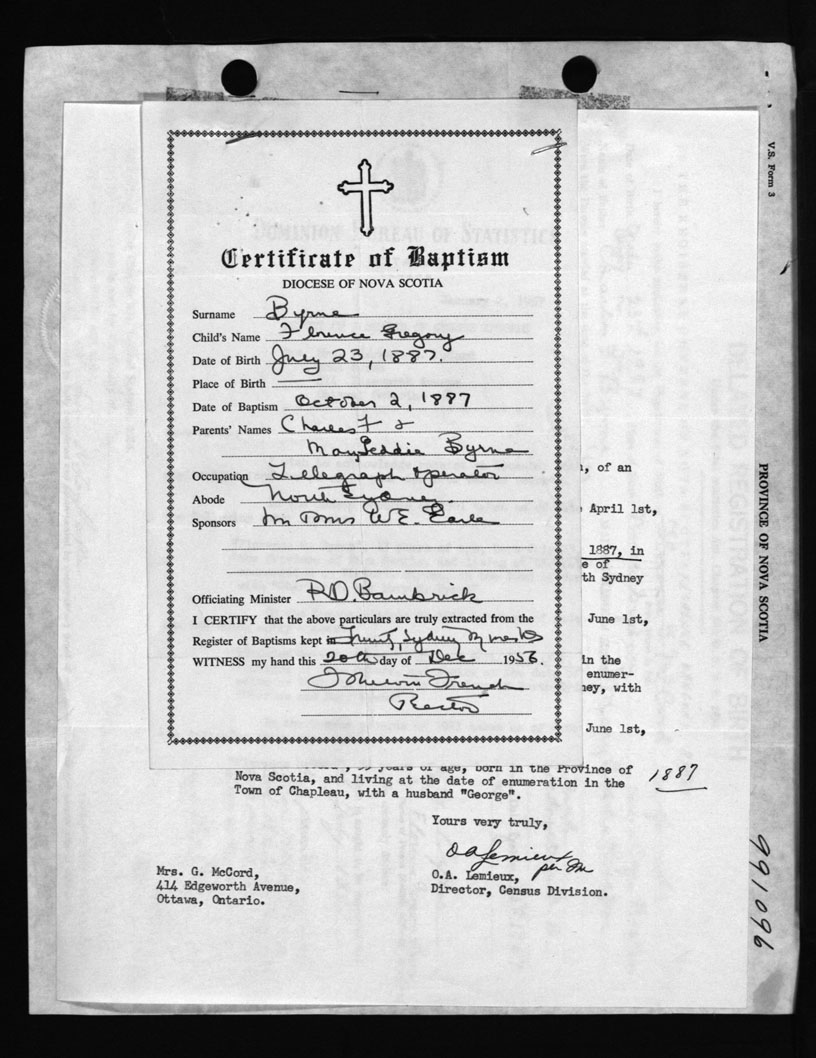 V.S. Form 3
PROVINCE OF NOVA SCOTIA
991096
Certificate of Baptism
DIOCESE OF NOVA SCOTIA
Surname Byrne
Child's Name Florence Gregory
Date of Birth July 23, 1887.
Place of Birth
Date of Baptism October 2, 1887
Parents' Names Charles F &
May Geddie Byrne
Occupation Telegraph Operator
Abode North Sydney
Sponsors Mr & Mrs W.E. Earle
Officiating Minister R.D. Bambrick
I CERTIFY that the above particulars are truly extracted from the
Register of Baptisms kept in Trinity, Sydney Mines NS
WITNESS my hand this 20th day of Dec 1956.
French
Rector
, of an
April 1st,
1887, in
e of
th Sydney
June 1st,
in the
enumer-
ney, with
June 1st,
years of age, born in the Province of
Nova Scotia, and living at the date of enumeration in the
Town of Chapleau, with a husband "George".
1887
Yours very truly,
O A Lemieux
per
O.A. Lemieux,
Director, Census Division.
Mrs. G. McCord,
414 Edgeworth Avenue,
Ottawa, Ontario.
DOMINION BUREAU OF STATISTICS